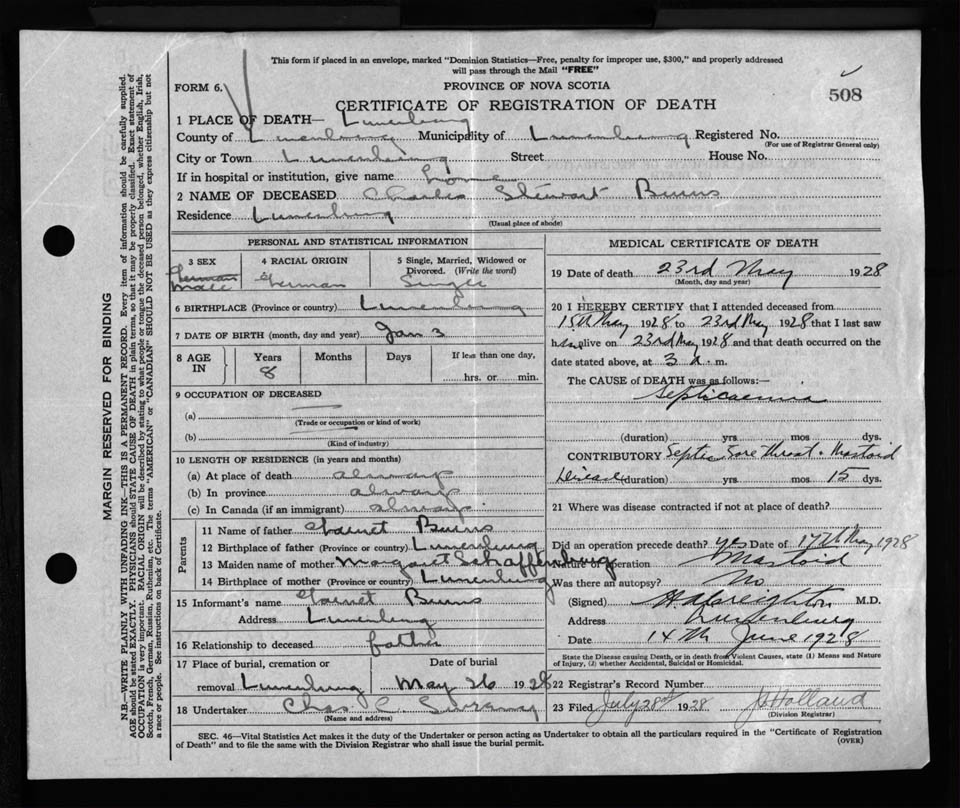 This form if placed in an envelope, marked "Dominion Statistics—Free, penalty for improper use, $300," and properly addressed
will pass through the Mail "FREE"
FORM 6.
PROVINCE OF NOVA SCOTIA
508
CERTIFICATE OF REGISTRATION OF DEATH
1 PLACE OF DEATH— Lunenburg
County of Lunenburg Municipality of Lunenburg Registered No.
(For use of Registrar General only)
City or Town Lunenburg Street House No.
If in hospital or institution, give name home
2 NAME OF DECEASED Charles Stewart Burns
Residence Lunenburg
(Usual place of abode)
MARGIN RESERVED FOR BINDING
N.B.—WRITE PLAINLY, WITH UNFADING INK—THIS IS A PERMANENT RECORD. Every item of information should be carefully supplied.
AGE should be stated EXACTLY. PHYSICIANS should STATE CAUSE OF DEATH in plain terms, so that it may be properly classified. Exact statement of
OCCUPATION is very important. RACIAL ORIGIN will be described by stating to what people or tongue the deceased person belonged, whether English, Irish,
Scotch, French, German, Russian, Ruthenian, etc. The terms "AMERICAN" or "CANADIAN" SHOULD NOT BE USED as they express citizenship but not
a race or people. See instructions on back of Certificate.
PERSONAL AND STATISTICAL INFORMATION
3 SEX
German
Male
4 RACIAL ORIGIN
German
5 Single, Married, Widowed or
Divorced. (Write the word)
Single
6 BIRTHPLACE (Province or country) Lunenburg
7 DATE OF BIRTH (month, day and year) Jan 3
8 AGE
IN
Years
8
Months
Days
If less than one day,
hrs. or min.
9 OCCUPATION OF DECEASED
(a)
(Trade or occupation or kind of work)
(b)
(Kind of industry)
10 LENGTH OF RESIDENCE (in years and months)
(a) At place of death always
(b) In province always
(c) In Canada (if an immigrant) always
Parents
11 Name of father Burns
12 Birthplace of father (Province or country) Lunenburg
13 Maiden name of mother Margaret Schaffenburg
14 Birthplace of mother (Province or country) Lunenburg
15 Informant's name Burns
Address Lunenburg
16 Relationship to deceased father
17 Place of burial, cremation or Date of burial
removal Lunenburg May 26 1928
18 Undertaker Chas C.
(Name and address)
MEDICAL CERTIFICATE OF DEATH
19 Date of death 23rd May 1928
(Month, day and year)
20 I HEREBY CERTIFY that I attended deceased from
15th May 1928 to 23rd May 1928 that I last saw
him alive on 23rd May 1928 and that death occurred on the
date stated above, at 3 a. m.
The CAUSE of DEATH was as follows:—
Septicaemia
(duration) yrs. mos dys.
CONTRIBUTORY Septic Sore Throat. Mastoid
Disease (duration) yrs. mos 15 dys.
21 Where was disease contracted if not at place of death?
Did an operation precede death? yes Date of 17th May 1928
Nature of operation Mastoid
Was there an autopsy? No
(Signed) M.D.
Address Lunenburg
Date 14th June 1928
State the Disease causing Death, or in death from Violent Causes, state (1) Means and Nature
of Injury, (2) whether Accidental, Suicidal or Homicidal.
22 Registrar's Record Number
23 Filed July 28 1928 Holland
(Division Registrar)
SEC. 46—Vital Statistics Act makes it the duty of the Undertaker or person acting as Undertaker to obtain all the particulars required in the "Certificate of Registration
of Death" and to file the same with the Division Registrar who shall issue the burial permit.
(OVER)